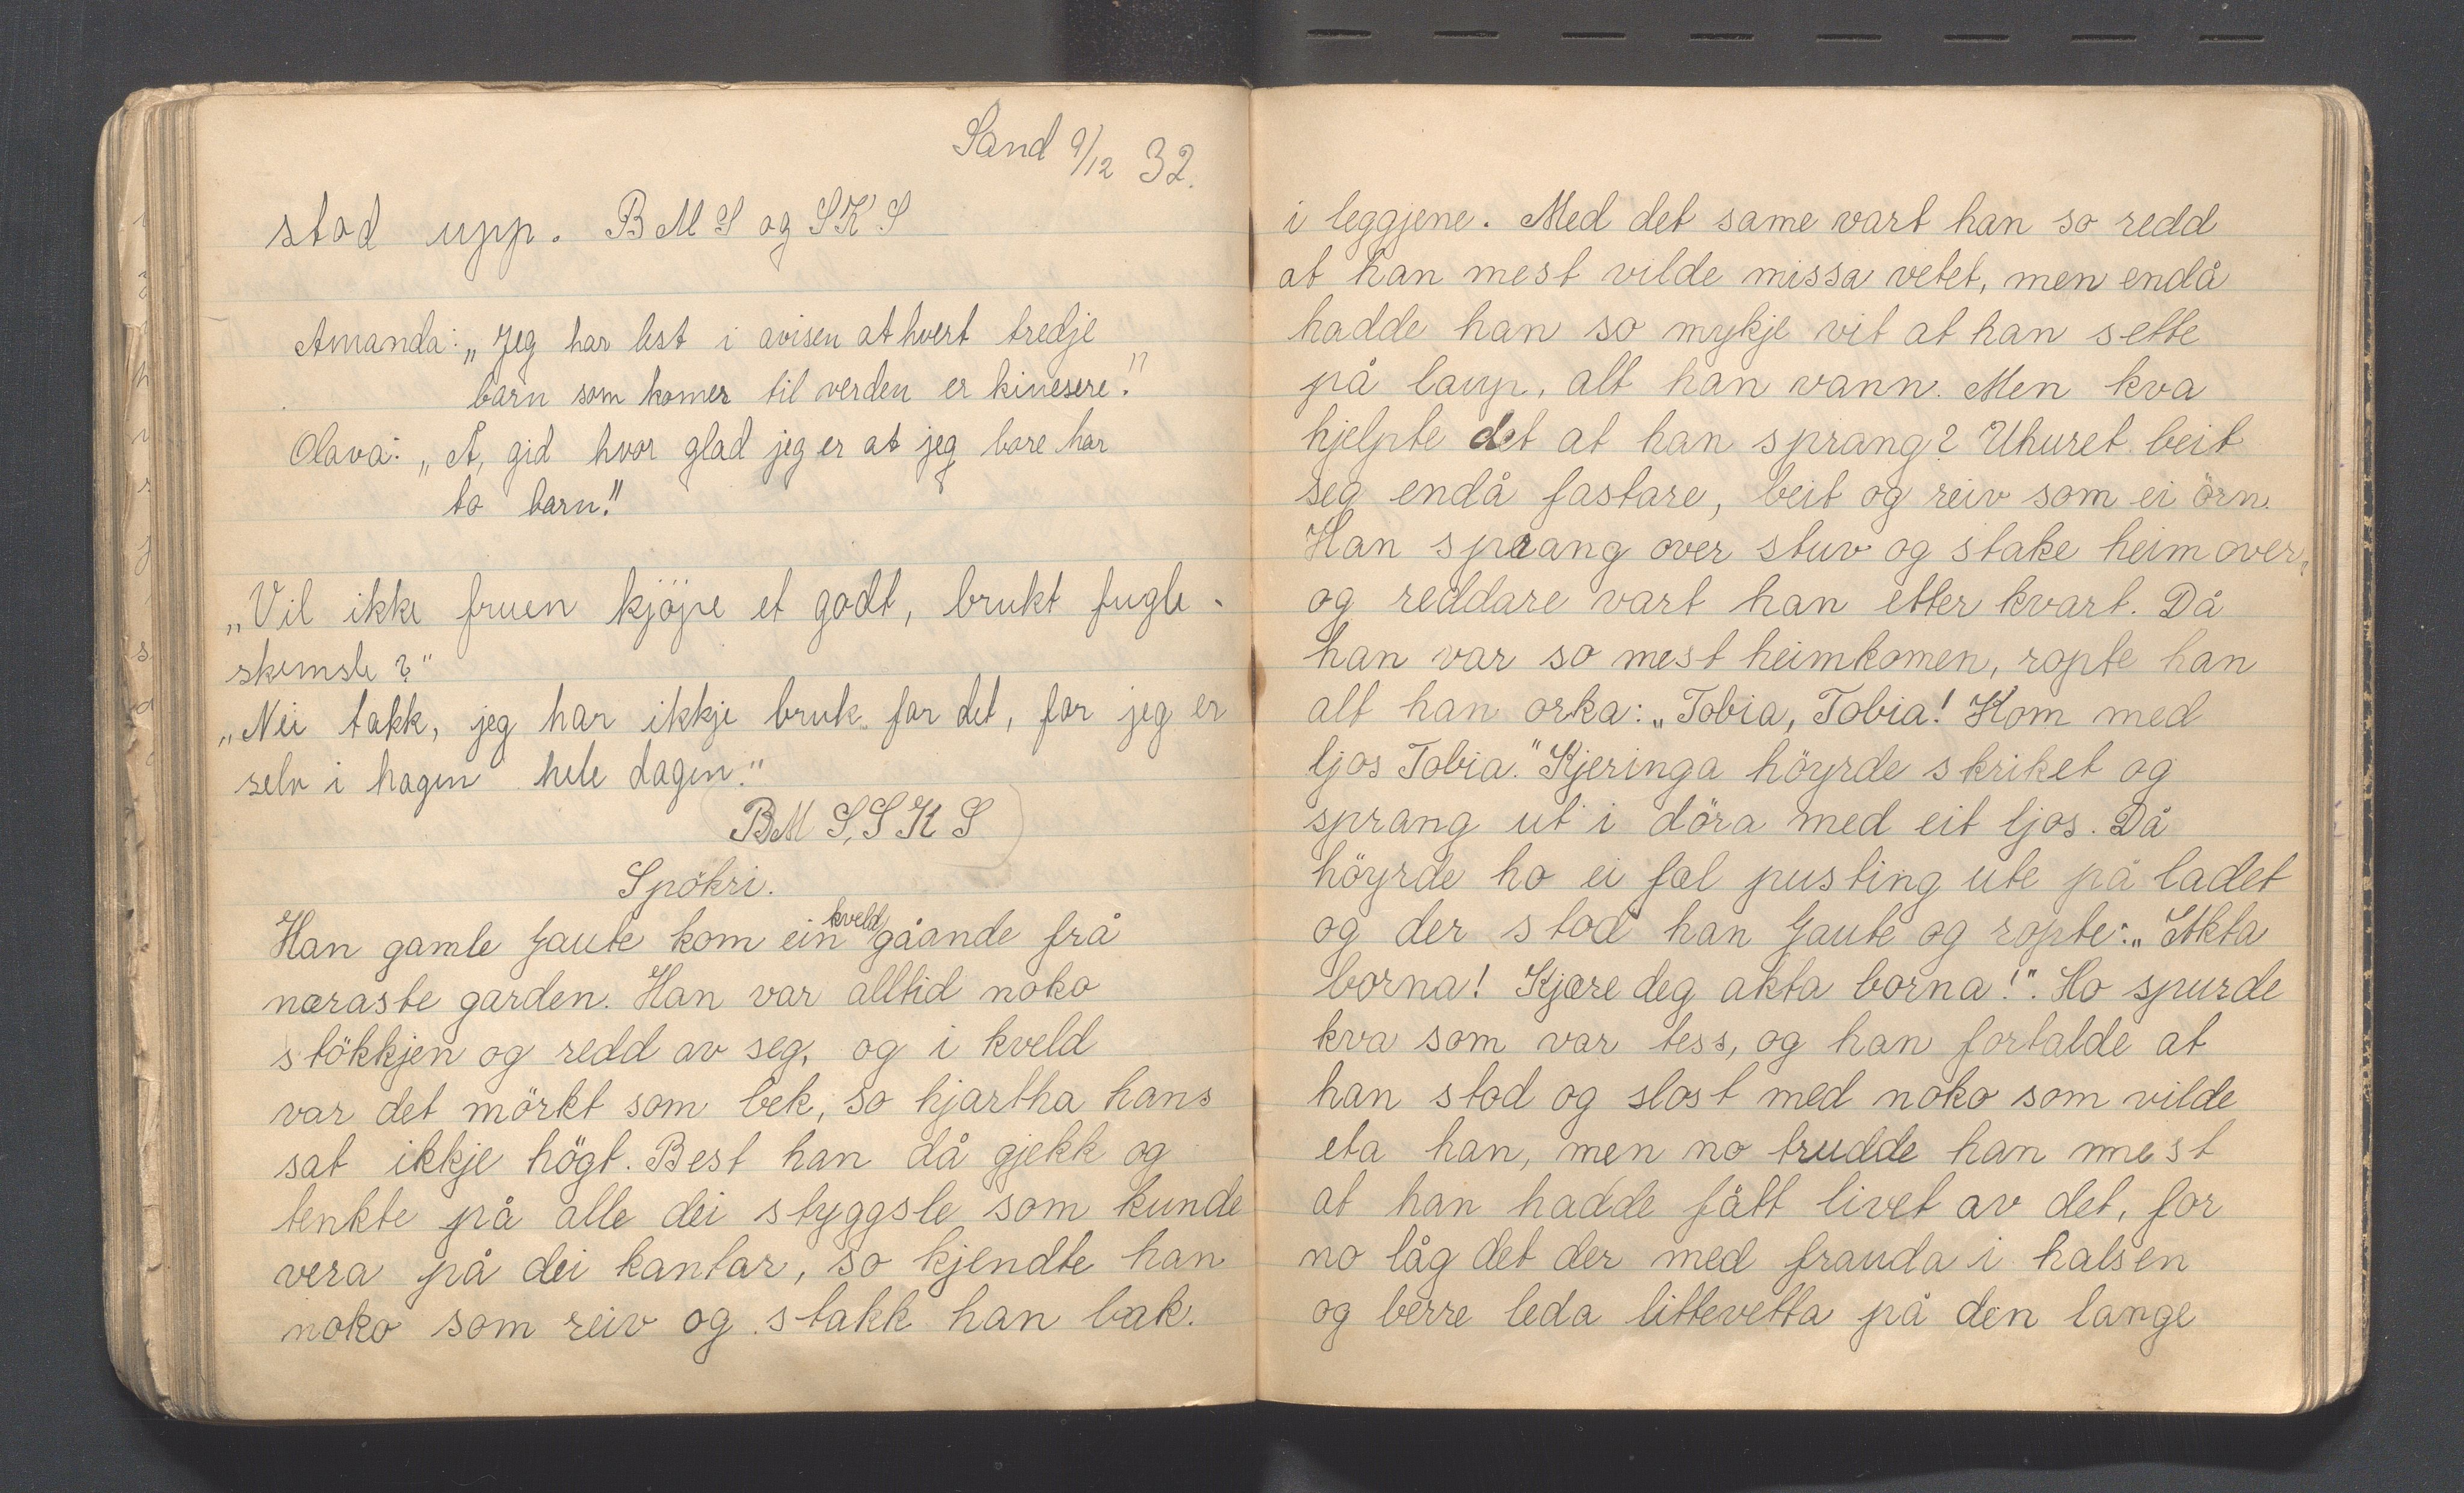 Sand 9/12 32.
stod upp. B M S og S K S
Amanda: „Jeg har lest i avisen at hvert tredje
barn som komer til verden er kinesere."
Olava: „Å, gid hvor glad jeg er at jeg bare har
to barn!"
„Vil ikke fruen kjöpe et godt, brukt fugle-
skemsle?"
„Nei takk, jeg har ikkje bruk for det, for jeg er
selv i hagen hele dagen."
B M S, S K S
Spökri.
Han gamle Jaute kom ein kveld gåande frå
næraste garden. Han var alltid noko
stökkjen og redd av seg, og i kveld
var det mörkt som bek, so hjartha hans
sat ikkje högt. Best han då gjekk og
tenkte på alle dei styggsle som kunde
vera på dei kantar, so kjendte han
noko som reiv og stakk han bak.
i leggjene. Med det same vart han so redd
at han mest vilde missa vetet, men endå
hadde han so mykje vit at han sette
på laup, alt han vann. Men kva
hjelpte det at han sprang? Uhuret beit
seg endå fastare, beit og reiv som ei örn.
Han spraang over stuv og stake heimover,
og reddare vart han etter kvart. Då
han var so mest heimkomen, ropte han
alt han orka: „Tobia, Tobia! Kom med
ljos Tobia." Kjeringa höyrde skriket og
sprang ut i döra med eit ljos. Då
höyrde ho ei fæl pusting ute på ladet
og der stod han Jaute og ropte: „Akta
borna! Kjære deg akta borna!". Ho spurde
kva som var tess, og han fortalde at
han stod og slost med noko som vilde
eta han, men no trudde han mest
at han hadde fått livet av det, for
no låg det der med frauda i halsen
og berre leda littevetta på den lange